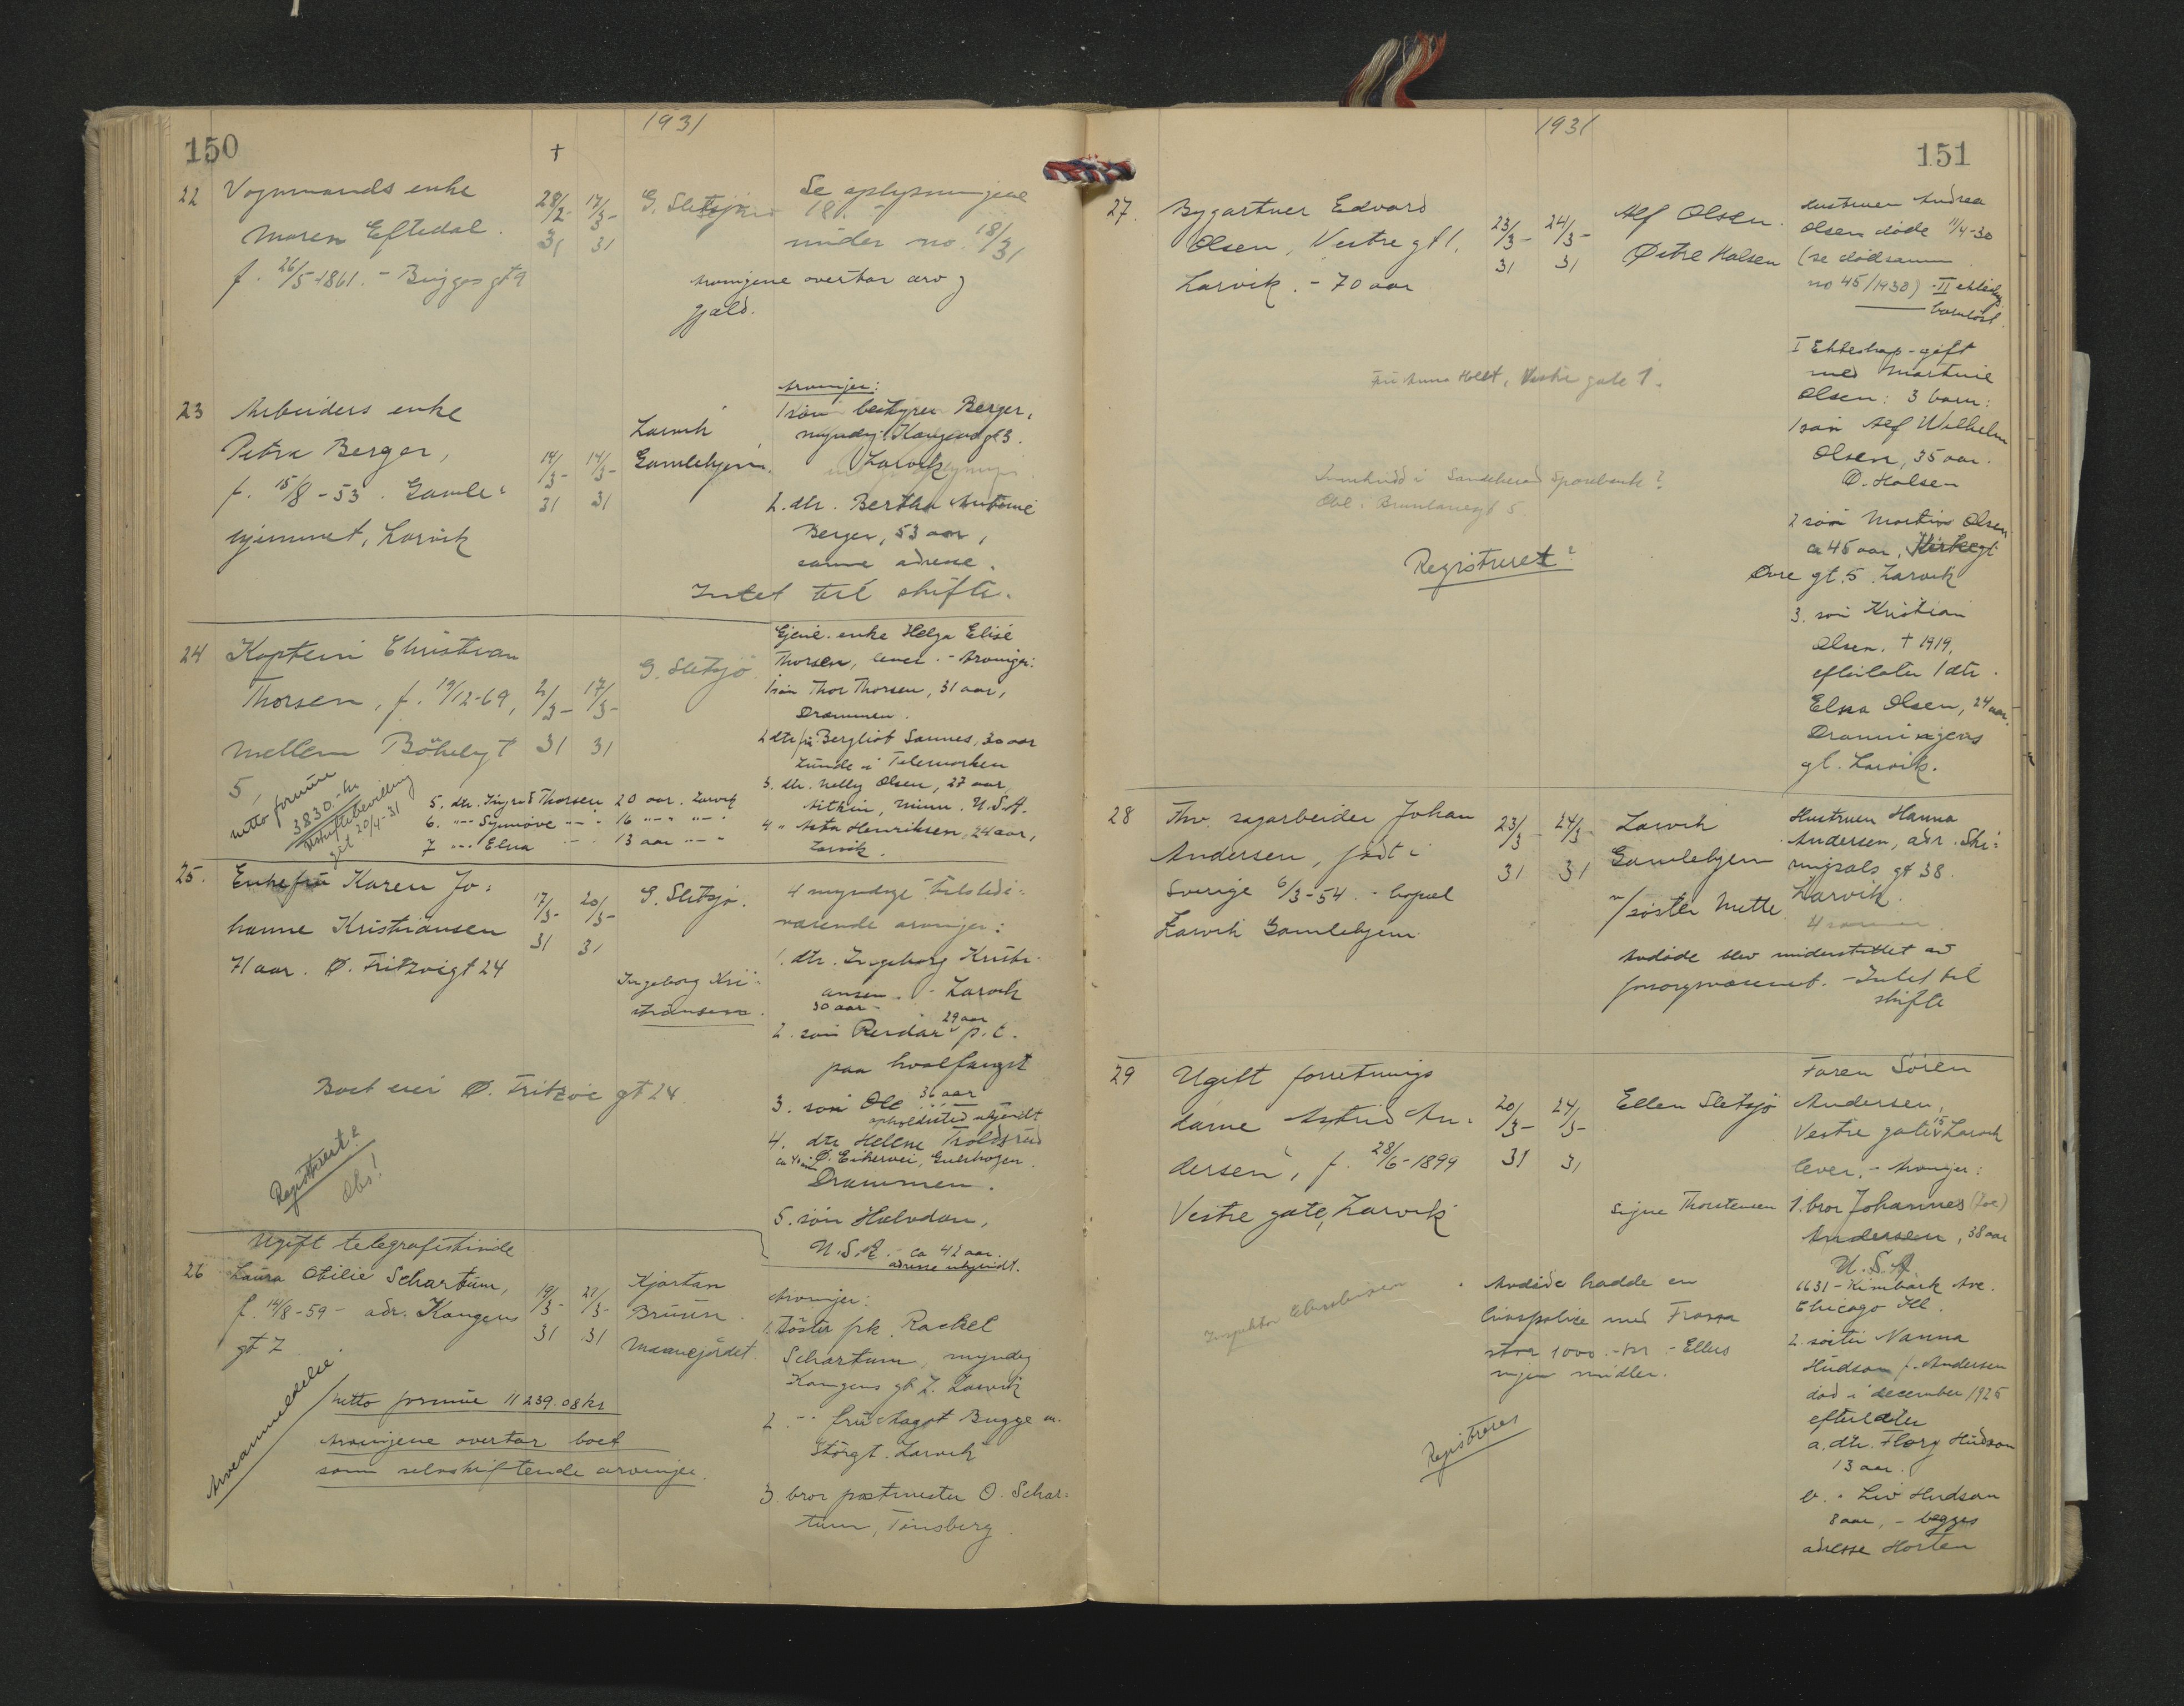 150
1931
†
22 Vognmands enke
Maren Eftedal.
f. 26/5-1861. - Bugges gt 9
28/2-31
17/3-31
G. Sletsjø
Se oplysningene
under no. 18/31
Arvingene overtar arv og
gjæld.
23 Arbeiders enke
Petra Berger,
f. 15/8-53. Gamle-
hjemmet, Larvik
14/3-31
14/3-31
Larvik
Gamlehjem.
Arvinger:
1 søn bestyrer Berger,
myndig. Kongensgt 3.
Larvik
2. dtr. Bertha Antonie
Berger, 53 aar,
samme adresse.
Intet til skifte.
24 Kaptein Christian
Thorsen, f. 19/12-69,
mellem Bökeligt
5,
2/3-31
17/3-31
G. Sletsjö
netto formue
3830.- kr
uskiftebevilling
git 20/4-31
Gjenl. enke Helga Elise
Thorsen, lever. - Arvinger:
1 søn Thor Thorsen, 31 aar,
Drammen.
2 dtr fru Bergliot Sannes, 30 aar
Lunde i Telemarken
3. dtr. Nelly Olsen, 27 aar,
Aitkin, Minn. U.S.A.
4 " Asta Henriksen, 24 aar,
Larvik.
5. dtr. Ingrid Thorsen 20 aar. Larvik
6. "-" Synnöve "-" 16 "-" "-"
7 "-" Elna "-" 13 aar "-"
25. Enkefru Karen Jo-
hanne Kristiansen
71 aar. Ø. Fritzøigt 24
17/3-31
20/3-31
G. Sletsjø.
Ingeborg Kri-
stiansen.
4 myndige tilstede-
værende arvinger:
1. dtr. Ingeborg Kristi-
ansen. - Larvik
30 aar -
29 aar
2. søn Reidar p.t.
paa hvalfangst
3. søn Ole 36 aar
opholdssted ukjendt
4. dtr Helene Troldsrud
ca 40 aar Ø. Eikervei, Gulskogen.
Drammen.
5. søn Halvdan,
U.S.A. - ca 42 aar.
adresse ukjendt.
Boet eier Ø. Fritzøe gt 24
Registrert?
Obs!
Ugift telegrafistinde
26 Laura Otilie Schartum,
f. 14/8-59 - adr. Kongens
gt 7
19/3-31
21/3-31
Kjartan
Bruun.
Maanejordet.
Arveanmeldelse
netto formue 11239.08 kr
Arvingene overtar boet
som selvskiftende arvinger.
Arvinger:
1. söster frk. Rachel
Schartum, myndig
Kongens gt. 7. Larvik
2. "-" fru Aagot Bugge m.
Störgt. Larvik
3. bror postmester O. Schar-
tum, Tönsberg.
1931
151
27. Bygartner Edvard
Olsen, Vestregt 1.
Larvik. - 70 aar
23/3-31
24/3-31
Alf Olsen.
Østre Halsen
Hustruen Andrea
Olsen döde 11/4-30
(se dödsanm
no 45/1930) - II ekteskap
barnlöst.
I Ekteskap - gift
med Martine
Olsen: 3 barn:
1 søn Alf Wilhelm
Olsen, 35 aar.
Ø. Halsen
2 søn Martin Olsen,
ca 45 aar, Kirkegt
Øvre gt. 5. Larvik
3. søn Kristian
Olsen. † 1919,
efterlater 1 dtr.
Elna Olsen, 24 aar.
Dronningens
gt. Larvik.
Fru Anna Holt, Vestre gate 1.
Innskudd i Sandeherred Sparebank?
Obl. Brunlanesgt 5.
Registrert?
28 Fhv. sagarbeider Johan
Andersen, født i
Sverige 6/3-54. - bopæl
Larvik Gamlehjem
23/3-31
24/3-31
Larvik
Gamlehjem
v/söster Mette.
Hustruen Hanna
Andersen, adr. Ski-
ringsals gt 38.
Larvik.
Avdøde blev understøttet av
forsorgsvæsenet. - Intet til
skifte
29 Ugift forretnings
dame Astrid An-
dersen, f. 28/6-1899
Vestre gate, Larvik
20/3-31
24/3-31
Ellen Sletsjø
Signe Thorstensen
Faren Sören
Andersen,
Vestre gate 15 Larvik
lever. - Arvinger:
1. bror Johannes (Joe)
Andersen, 38 aar
U.S.A
6631 - Kimbark Ave.
Chicago Ill.
2. söster Nanna
Hudson f. Andersen
död i december 1925
efterlater
a. dtr. Flory Hudson
13 aar.
b. " Liv Hudson
8 aar, - begges
adresse Horten
Avdøde hadde en
livspolise med Fram
stor 1000.- kr - Ellers
ingen midler.
Registreres